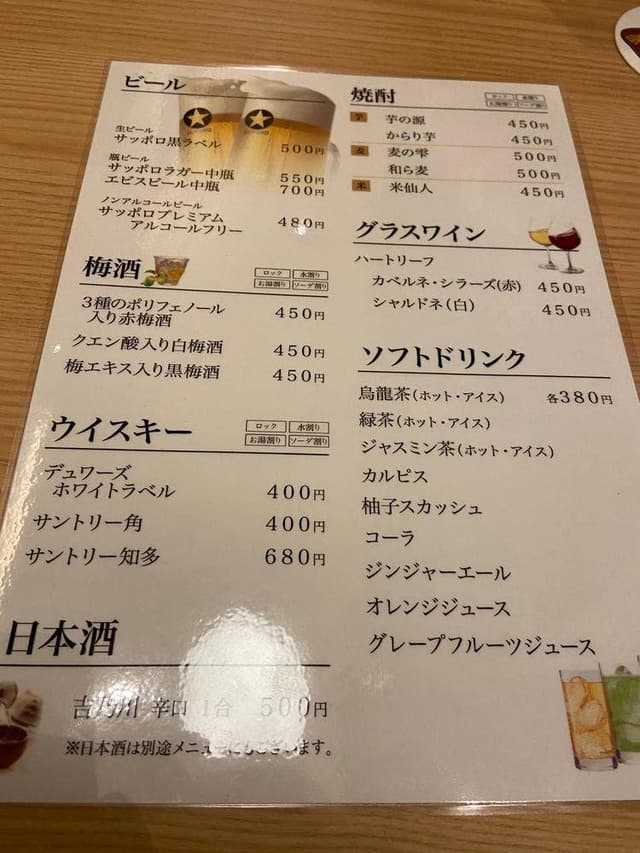 ビール
生ビール
サッポロ黒ラベル 500円
瓶ビール
サッポロラガー中瓶 550円
エビスビール中瓶 700円
ノンアルコールビール
サッポロプレミアム
アルコールフリー 480円
梅酒
ロック 水割り
お湯割り ソーダ割り
3種のポリフェノール
入り赤梅酒 450円
クエン酸入り白梅酒 450円
梅エキス入り黒梅酒 450円
ウイスキー
ロック 水割り
お湯割り ソーダ割り
デュワーズ
ホワイトラベル 400円
サントリー角 400円
サントリー知多 680円
日本酒
吉乃川 辛口 1合 500円
※日本酒は別途メニューにもございます。
焼酎
ロック 水割り
お湯割り ソーダ割り
芋 芋の源 450円
からり芋 450円
麦 麦の雫 500円
和ら麦 500円
米 米仙人 450円
グラスワイン
ハートリーフ
カベルネ・シラーズ(赤) 450円
シャルドネ(白) 450円
ソフトドリンク
烏龍茶(ホット・アイス) 各380円
緑茶(ホット・アイス)
ジャスミン茶(ホット・アイス)
カルピス
柚子スカッシュ
コーラ
ジンジャーエール
オレンジジュース
グレープフルーツジュース